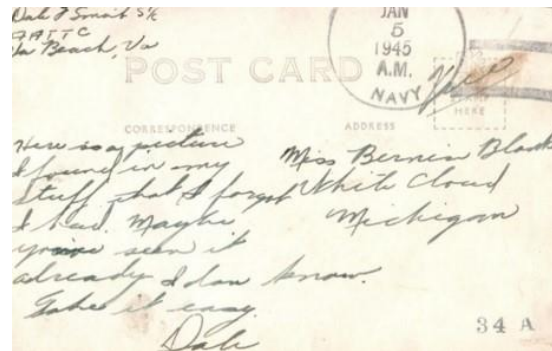 Dale F Smail S1/c
FATTC
Va Beach, Va
JAN
5
1945
A.M.
NAVY
Free
POST CARD
STAMP
HERE
CORRESPONDENCE
ADDRESS
Here is a picture
I found in my
stuff that I forgot
I had. Maybe
you've seen it
already I don know.
Take it easy.
Dale
Miss Bernice Blank
White Cloud
Michigan
34 A